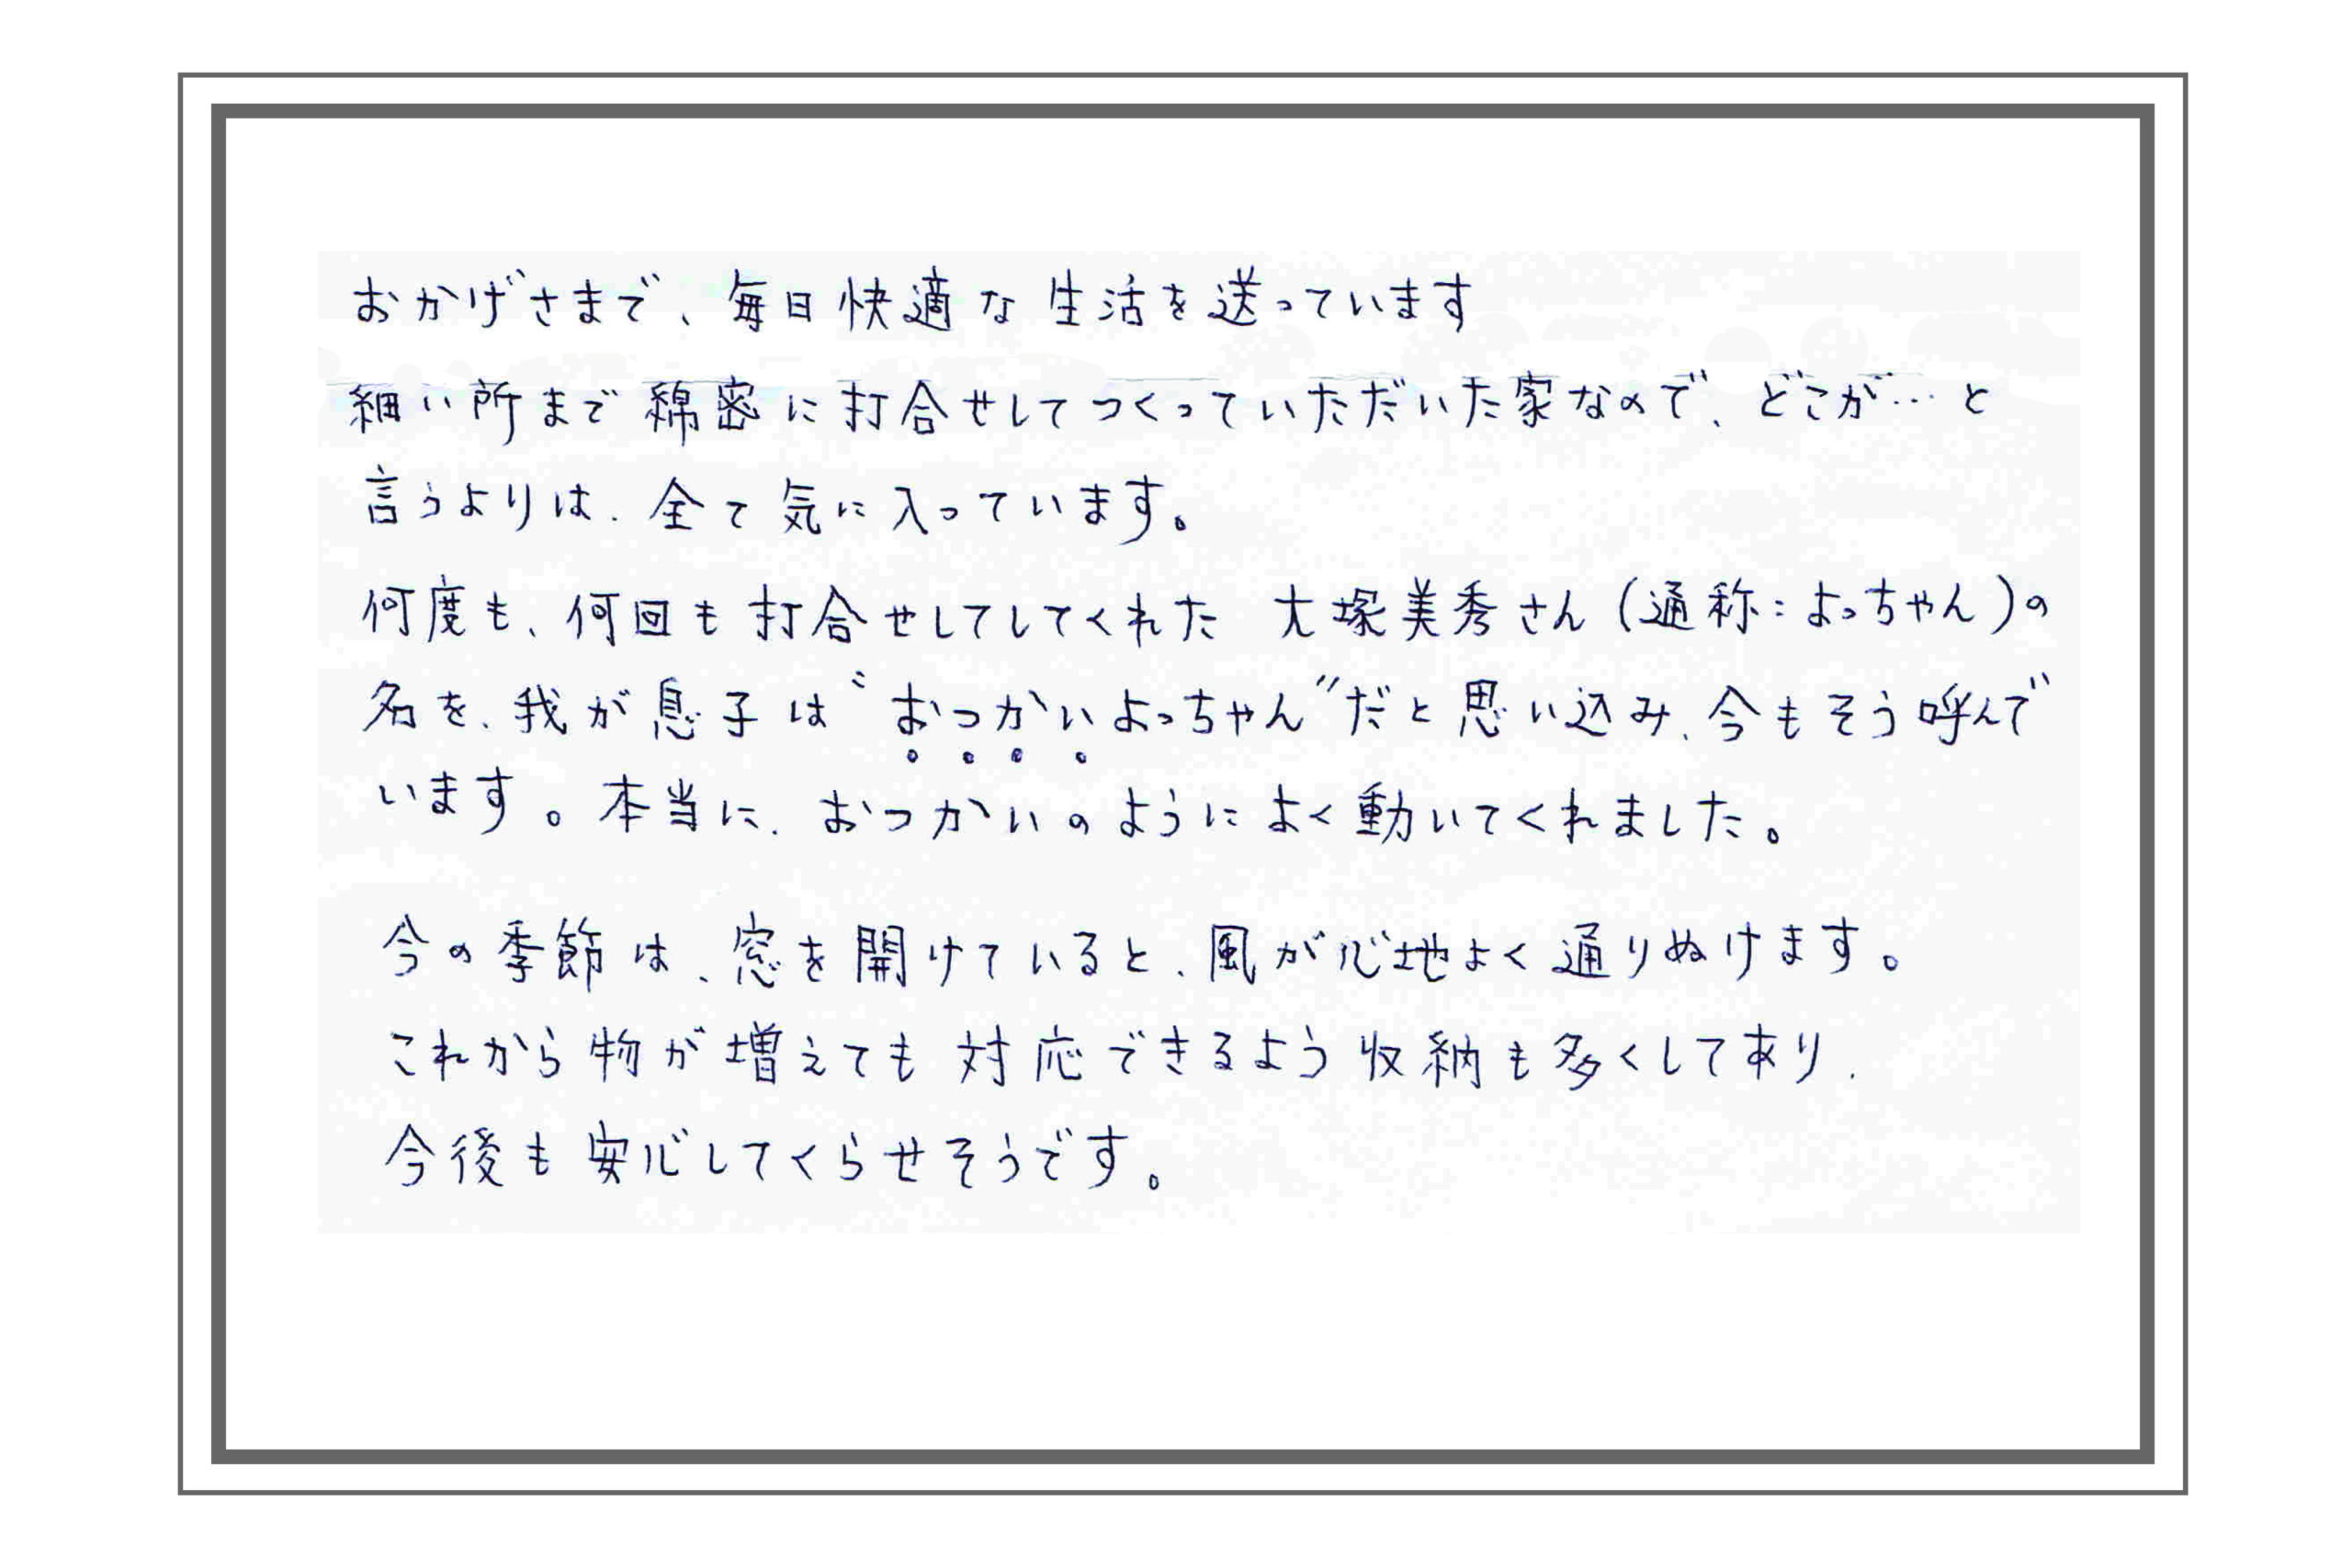 おかげさまで、毎日快適な生活を送っています
細い所まで綿密に打合せしてつくっていただいた家なので、どこが…と
言うよりは、全て気に入っています。
何度も、何回も打合せしてしてくれた 大塚美秀さん(通称:よっちゃん)の
名を、我が息子は〝おつかいよっちゃん〟だと思い込み、今もそう呼んで
います。本当に、おつかいのようによく動いてくれました。
今の季節は、窓を開けていると、風が心地よく通りぬけます。
これから物が増えても対応できるよう収納も多くしてあり、
今後も安心してくらせそうです。